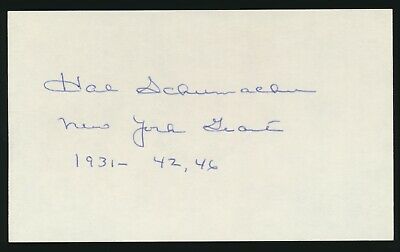 Hal Schumacher
New York Giants
1931- 42, 46